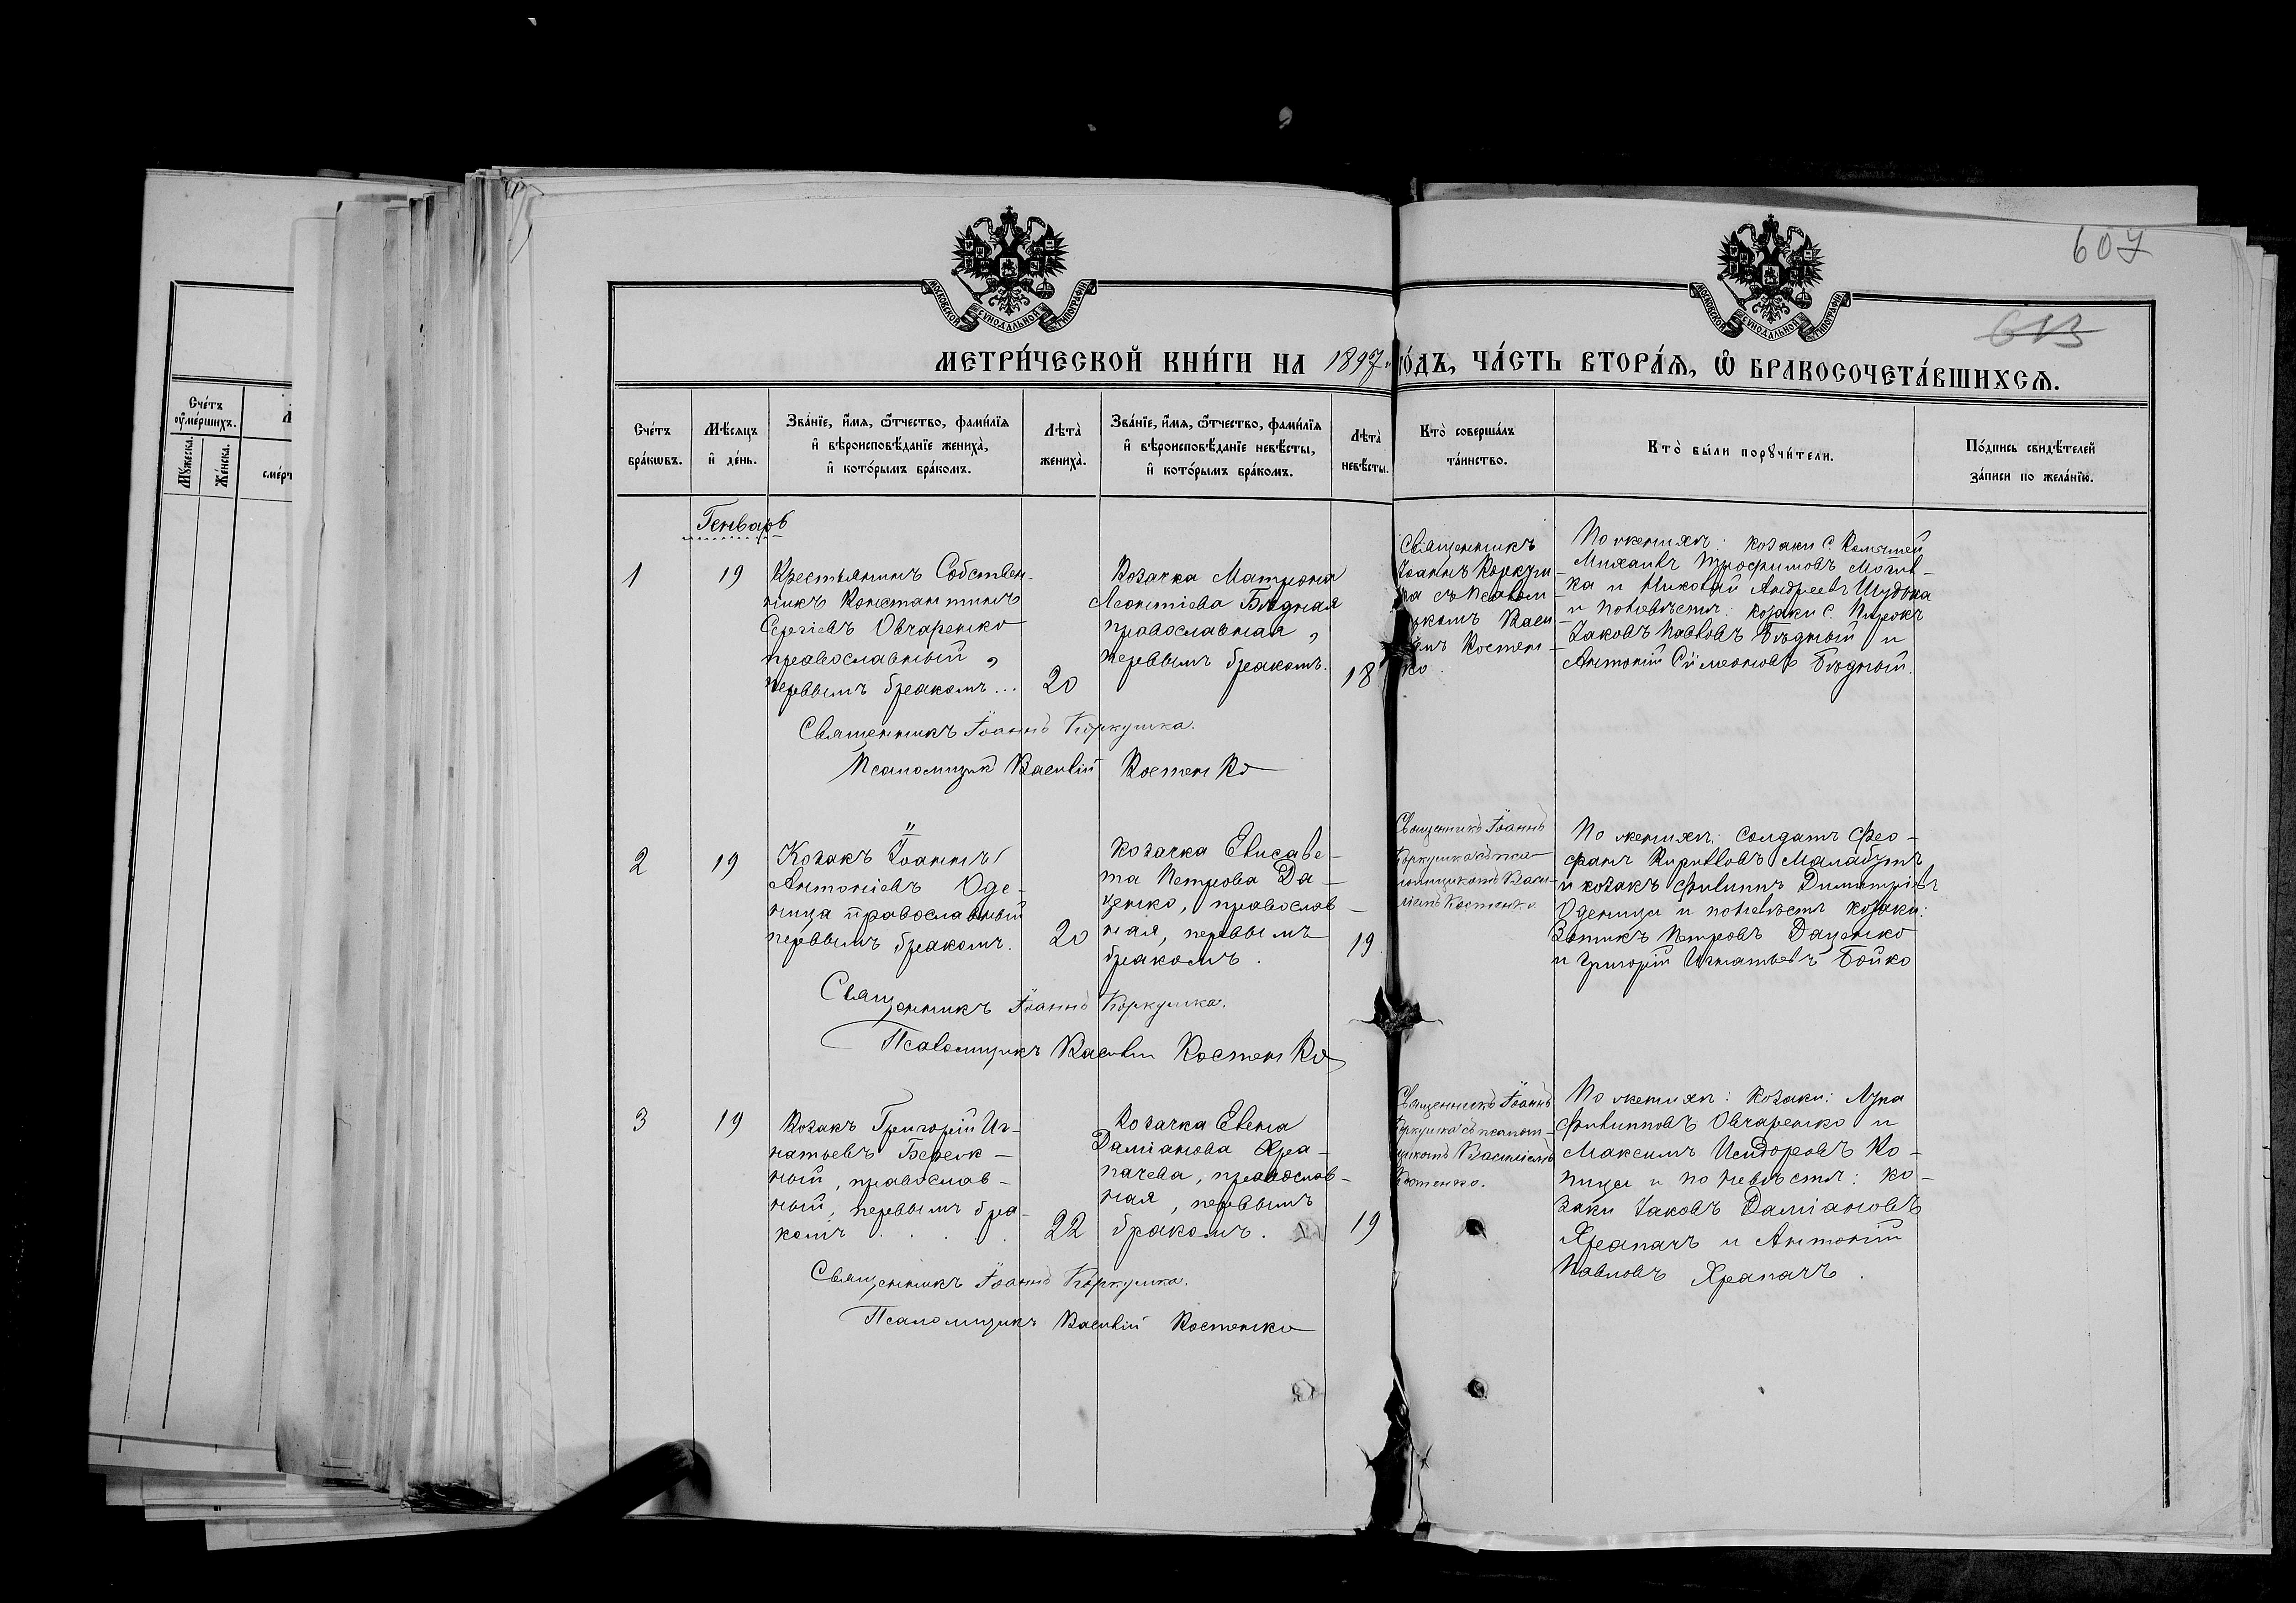 607
613
МОСКОВСКОЙ СѴНОДАЛЬНОЙ ТИПОГРАФІИ
МОСКОВСКОЙ СѴНОДАЛЬНОЙ ТИПОГРАФІИ
МЕТРИ́ЧЕСКОЙ КНИ́ГИ НА 1897 го́дъ, ЧА́СТЬ ВТОРА́Я, Ѽ БРАКОСОЧЕТА́ВШИХСЯ.
Сче́тъ
ᲂу҆ме́ршихъ.
Мꙋ́жеска.
Же́нска.
Сче́тъ
бра́кѡвъ.
Мѣ́сяцъ
и҆ де́нь.
Зва́нїе, и҆́мя, ѻ҆́тчество, фами́лїя
и҆ вѣроисповѣ́данїе жениха̀,
и҆ кото́рымъ бра́комъ.
Лѣта̀
жениха̀.
Зва́нїе, и҆́мя, ѻ҆́тчество, фами́лїя
и҆ вѣроисповѣ́данїе невѣ́сты,
и҆ кото́рымъ бра́комъ.
Лѣта̀
невѣ́сты.
Кто̀ соверша́лъ
та́инство.
Кто̀ бы́ли порꙋчи́тели.
По́дпись свидѣ́телей
за́писи по жела́нїю.
Генварь
1
19
Крестьянинъ Собствен-
никъ Константинъ
Сергіевъ Овчаренко
православный,
первымъ бракомъ...
20
Козачка Матрона
Леонтіева Бѣдная
православная,
первымъ бракомъ.
18
Священникъ
Іоаннъ Коркуш-
ка съ псалом-
щикомъ Васи
ліемъ Костен-
ко
По женихѣ: козаки с.
Михаилъ Трофимовъ
ка и Николай Андреевъ
и по невѣстѣ: козаки с.
Іаковъ Павловъ Бѣдный и
Антоній Сѵмеоновъ Бѣдный.
Священникъ Іоаннъ Коркушка.
Псаломщикъ Василій Костенко
2
19
Козакъ Іоаннъ
Антоніевъ Оде-
ница православный
первымъ бракомъ.
20
Козачка Елисаве-
та Петрова Да-
ценко, православ-
ная, первымъ
бракомъ.
19.
Священникъ Іоаннъ
Коркушка съ пса-
ломщикомъ Васи-
ліемъ Костенко.
По женихѣ: солдатъ Фео-
фанъ Кирилловъ Малабутъ,
и козакъ Филиппъ Димитріевъ
Оденица и по невѣстѣ козаки:
Зотикъ Петровъ Даценко
и Григорій Игнатьевъ Бойко
Священникъ Іоаннъ Коркушка.
Псаломщикъ Василій Костенко
3
19
Козакъ Григорій Иг-
натьевъ
ный, православ-
ный, первымъ бра-
комъ
22
Козачка Елена
Даміанова Хра-
пачева, православ-
ная, первымъ
бракомъ.
19
Священникъ Іоаннъ
Коркушка съ псалом-
щикомъ Василіемъ
Костенко.
По женихѣ: Козаки: Лука
Филипповъ Овчаренко и
Максимъ Исидоровъ Ко-
пица и по невѣстѣ: ко-
заки Іаковъ Даміановъ
Храпачъ и Антоній
Павловъ Храпачъ.
Священникъ Іоаннъ Коркушка.
Псаломщикъ Василій Костенко